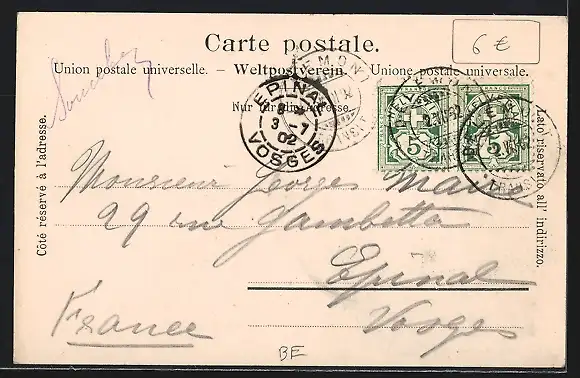 Carte postale.
6 €
Union postale universelle. – Weltpostverein. Unione postale universale.
Nur für die Adresse.
Côté réservé à l'adresse.
Lato riservato all' indirizzo.
EPINAL
3 -7
02
VOSGES
HELVETIA
5
5
TRANSIT
Monsieur Georges
29 rue Gambetta
Epinal
Vosges
France
BE